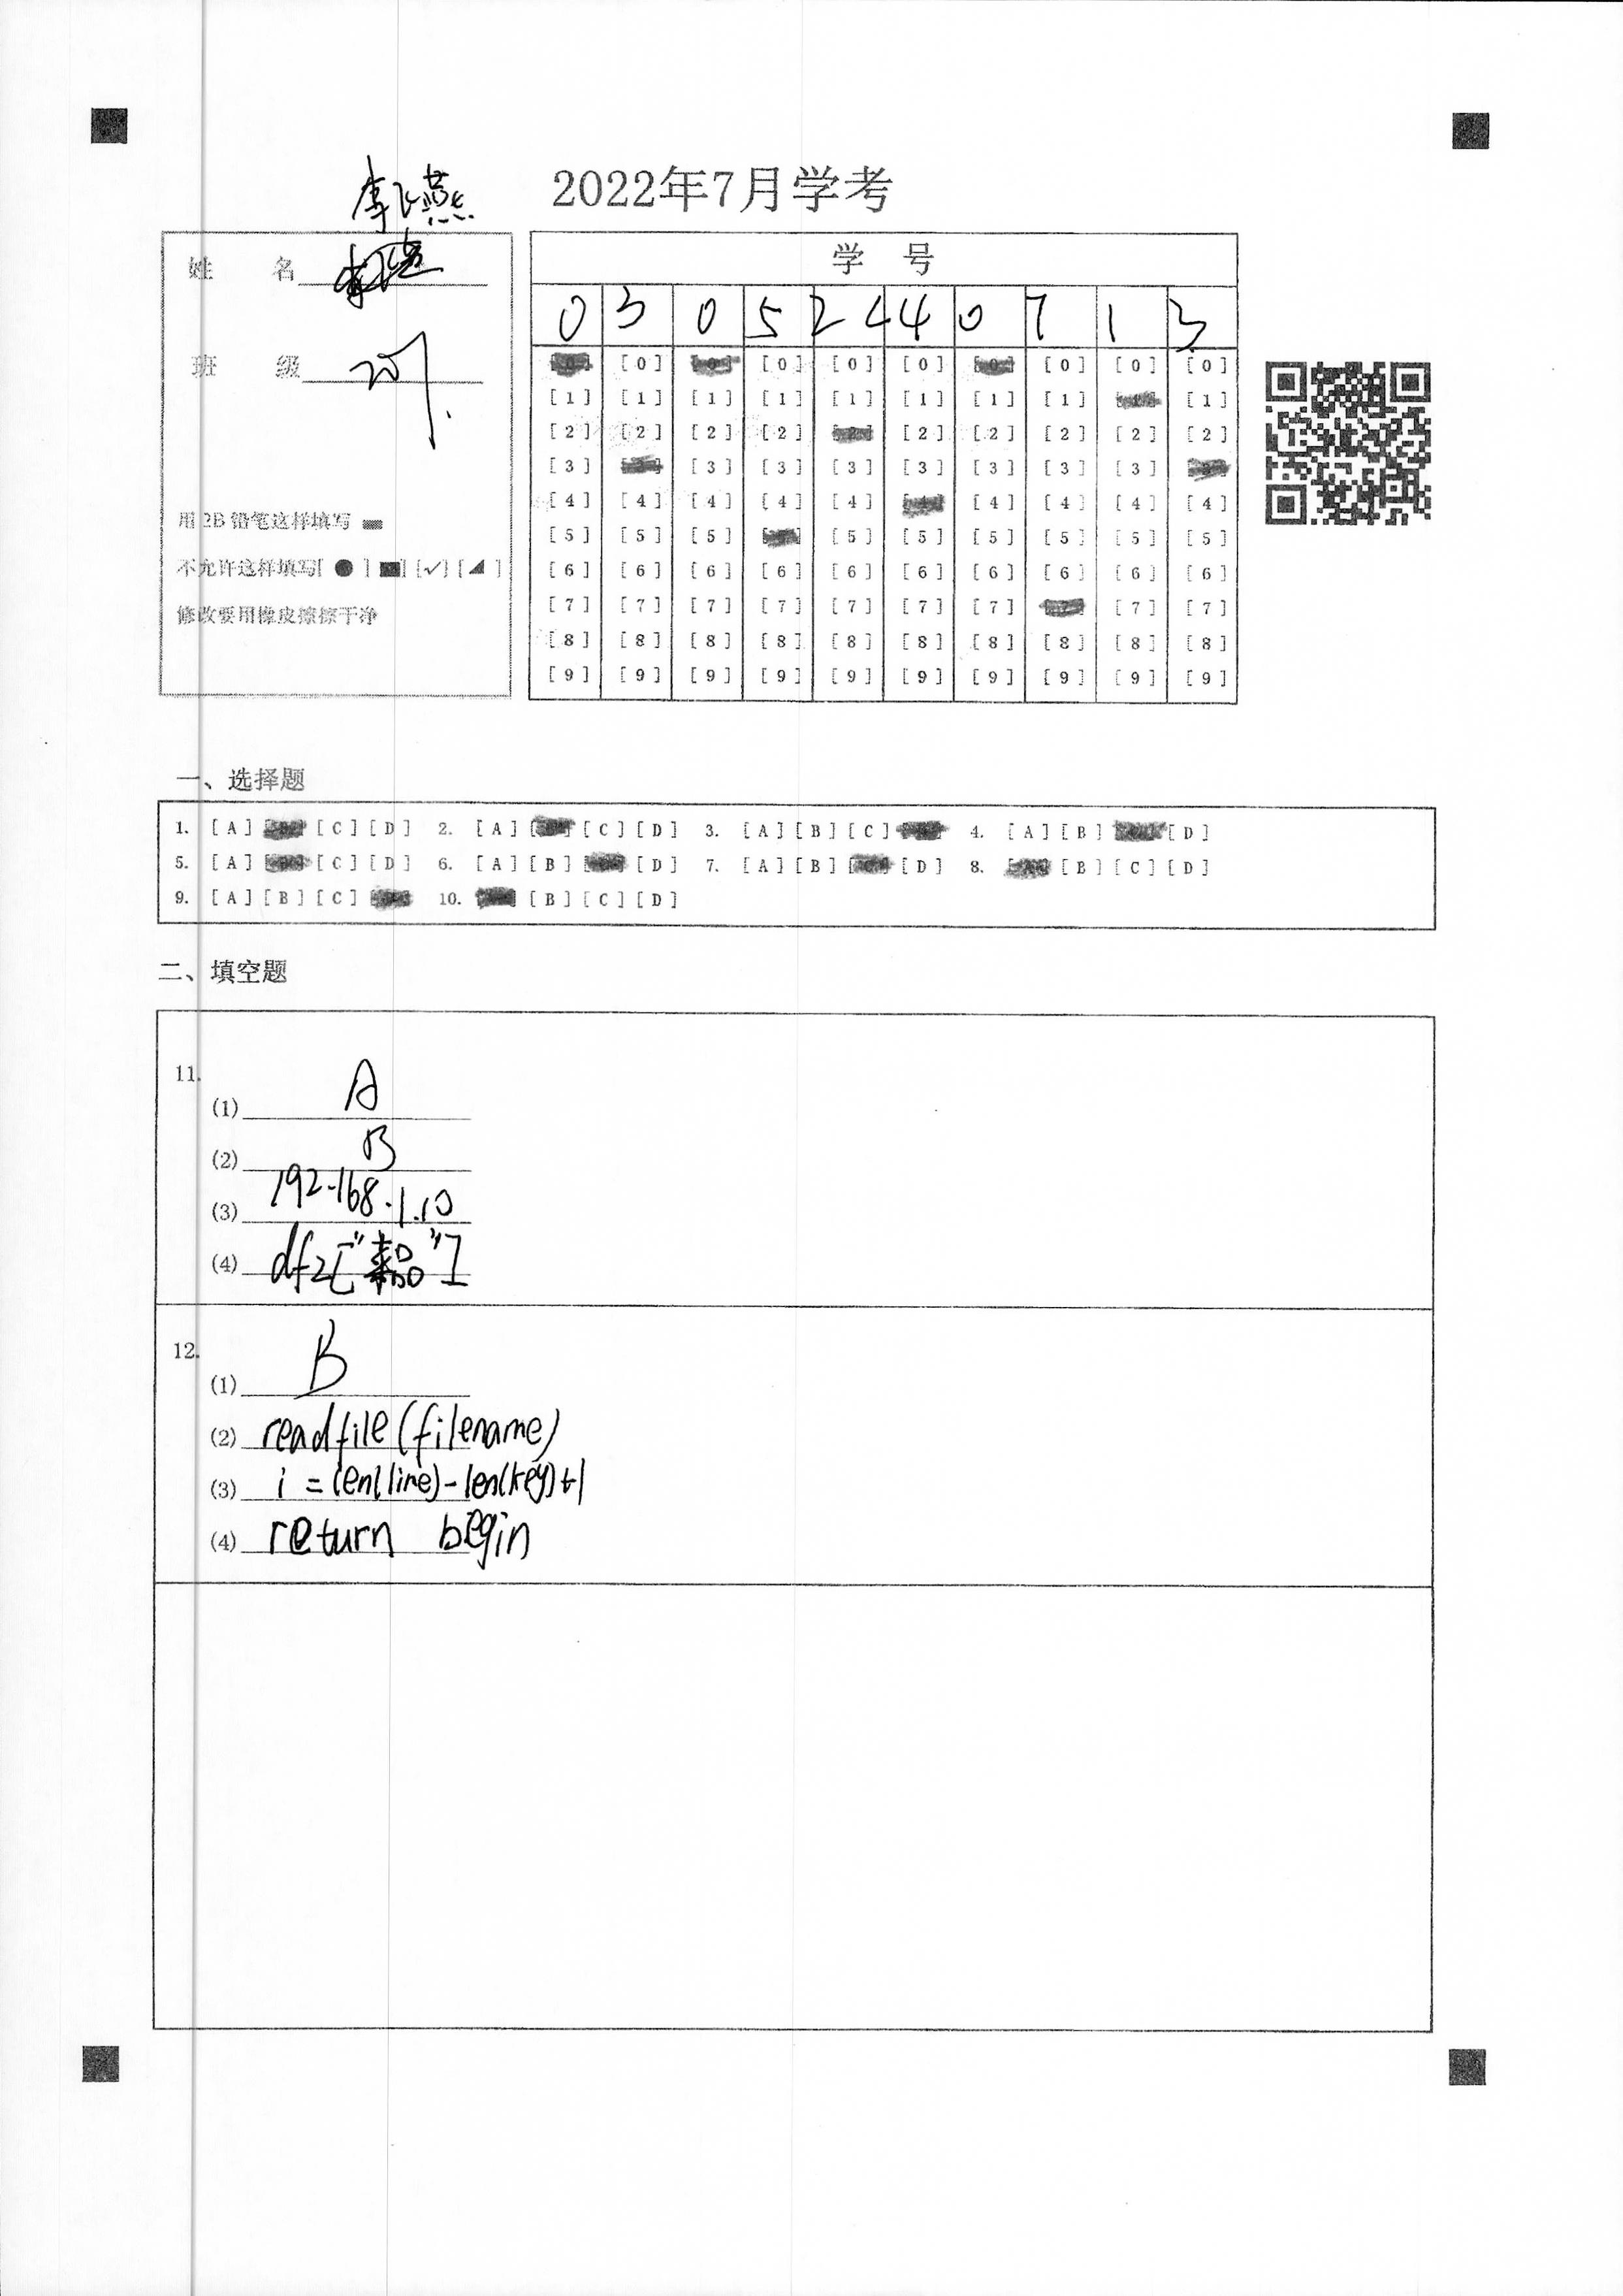 李飞燕
2022年7月学考
姓 名
班 级
用2B铅笔这样填写
不允许这样填写[●][■][✓][◢]
修改要用橡皮擦擦干净
学 号
0 3 0 5 2 4 4 0 7 1 3
[0] [0] [0] [0] [0] [0] [0] [0] [0] [0]
[1] [1] [1] [1] [1] [1] [1] [1] [1] [1]
[2] [2] [2] [2] [2] [2] [2] [2] [2] [2]
[3] [3] [3] [3] [3] [3] [3] [3] [3] [3]
[4] [4] [4] [4] [4] [4] [4] [4] [4] [4]
[5] [5] [5] [5] [5] [5] [5] [5] [5] [5]
[6] [6] [6] [6] [6] [6] [6] [6] [6] [6]
[7] [7] [7] [7] [7] [7] [7] [7] [7] [7]
[8] [8] [8] [8] [8] [8] [8] [8] [8] [8]
[9] [9] [9] [9] [9] [9] [9] [9] [9] [9]
一、选择题
1. [A] [B] [C] [D] 2. [A] [B] [C] [D] 3. [A] [B] [C] [D] 4. [A] [B] [C] [D]
5. [A] [B] [C] [D] 6. [A] [B] [C] [D] 7. [A] [B] [C] [D] 8. [A] [B] [C] [D]
9. [A] [B] [C] [D] 10. [A] [B] [C] [D]
二、填空题
11.
(1) A
(2) B
(3) 192.168.1.10
(4) df2["菜品"]
12.
(1) B
(2) readfile(filename)
(3) i=len(line)-len(key)+1
(4) return begin